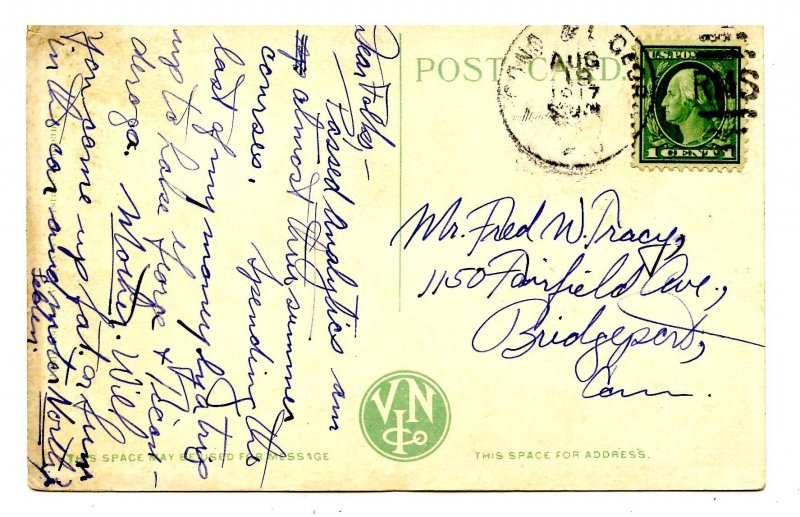 POST CARD.
AUG
1917
R.M.S.
U.S. POSTAGE
1 CENT 1
Mr. Fred W. Tracy,
1150 Fairfield Ave.,
Bridgeport,
Conn.
Dear Folks,-
Passed Analytics am
up almost three summer
courses. Spending the
last of my money by a trip
up to Lake George & Ticon-
deroga. Mother, Will
you come up Sat. or Sun
in the car and motor North?
VNICo
THIS SPACE MAY BE USED FOR MESSAGE
THIS SPACE FOR ADDRESS.